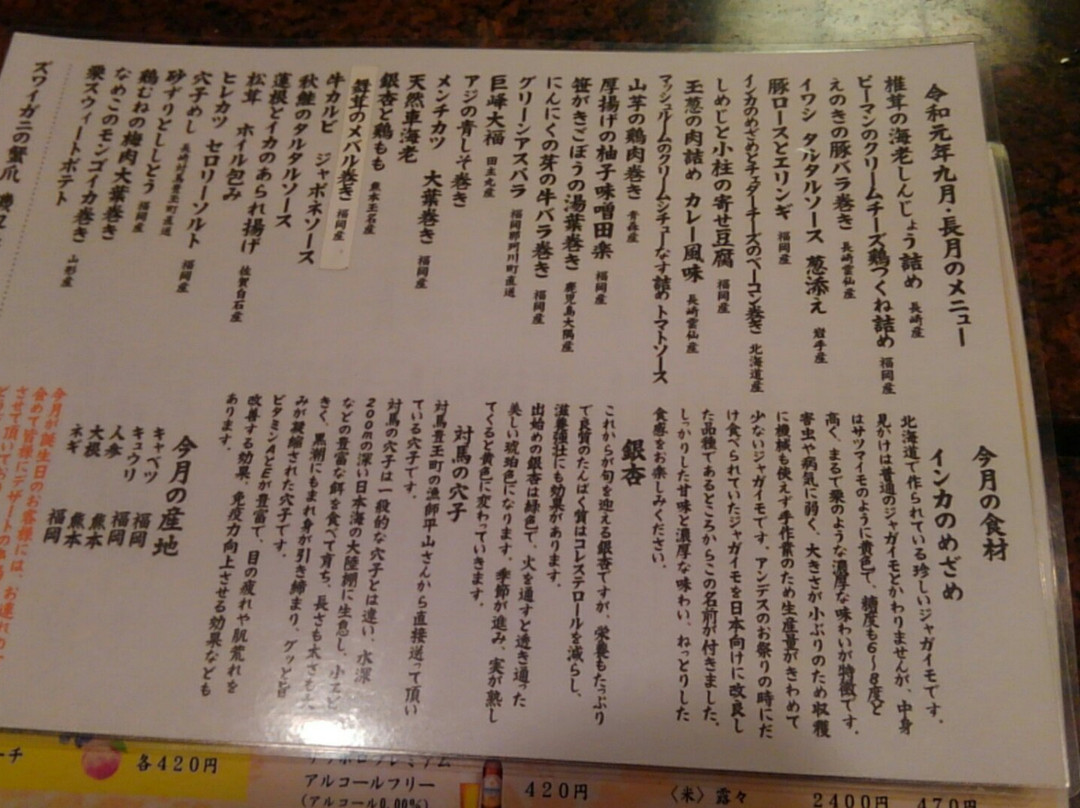 令和元年九月・長月のメニュー
椎茸の海老しんじょう詰め 長崎産
ピーマンのクリームチーズ鶏つくね詰め 福岡産
えのきの豚バラ巻き 長崎雲仙産
イワシ タルタルソース 葱添え 岩手産
豚ロースとエリンギ 福岡産
インカのめざめとチェダーチーズのベーコン巻き 北海道産
しめじと小柱の寄せ豆腐 福岡産
玉葱の肉詰め カレー風味 長崎雲仙産
マッシュルームのクリームシチューなす詰め トマトソース
山芋の鶏肉巻き 青森産
厚揚げの柚子味噌田楽 福岡産
笹がきごぼうの湯葉巻き 鹿児島大隅産
にんにくの芽の牛バラ巻き 福岡産
グリーンアスパラ 福岡那珂川町直送
巨峰大福 田主丸産
アジの青しそ巻き
メンチカツ 大葉巻き 福岡産
天然車海老
銀杏と鶏もも 熊本玉名産
舞茸のメバル巻き 福岡産
牛カルビ ジャポネソース
秋鮭のタルタルソース
蓮根とイカのあられ揚げ 佐賀白石産
松茸 ホイル包み
ヒレカツ セロリーソルト 福岡産
穴子めし 長崎対馬豊玉町直送
砂ずりとししとう 福岡産
鶏むねの梅肉大葉巻き
なめこのモンゴイカ巻き 山形産
栗スウィートポテト
ズワイガニの蟹爪
今月の食材
インカのめざめ
北海道で作られている珍しいジャガイモです。
見かけは普通のジャガイモとかわりませんが、中身
はサツマイモのように黄色で、糖度も6〜8度と
高く、まるで栗のような濃厚な味わいが特徴です。
害虫や病気に弱く、大きさが小ぶりのため収穫
に機械も使えず手作業のため生産量がきわめて
少ないジャガイモです。アンデスのお祭りの時にだ
け食べられていたジャガイモを日本向けに改良し
た品種であるところからこの名前が付きました。
しっかりした甘味と濃厚な味わい、ねっとりした
食感をお楽しみください。
銀杏
これからが旬を迎える銀杏ですが、栄養もたっぷり
で良質のたんぱく質はコレステロールを減らし、
滋養強壮にも効果があります。
出始めの銀杏は緑色で、火を通すと透き通った
美しい琥珀色になります。季節が進み、実が熟し
てくると黄色に変わっていきます。
対馬の穴子
対馬豊玉町の漁師平山さんから直接送って頂い
ている穴子です。
対馬の穴子は一般的な穴子とは違い、水深
200mの深い日本海の大陸棚に生息し、小エビ
などの豊富な餌を食べて育ち、長さも太さも大
きく、黒潮にもまれ身が引き締まり、グッと旨
みが凝縮された穴子です。
ビタミンACEが豊富で、目の疲れや肌荒れを
改善する効果、免疫力向上させる効果なども
あります。
今月の産地
キャベツ 福岡
キュウリ 福岡
人参 熊本
大根 熊本
ネギ 福岡
今月が誕生日のお客様には、お連れの
含めて皆様にデザートの
させて頂いて
ーチ
各420円
アルコールフリー
(アルコール0.00%)
420円
〈米〉露々
2400円 470円